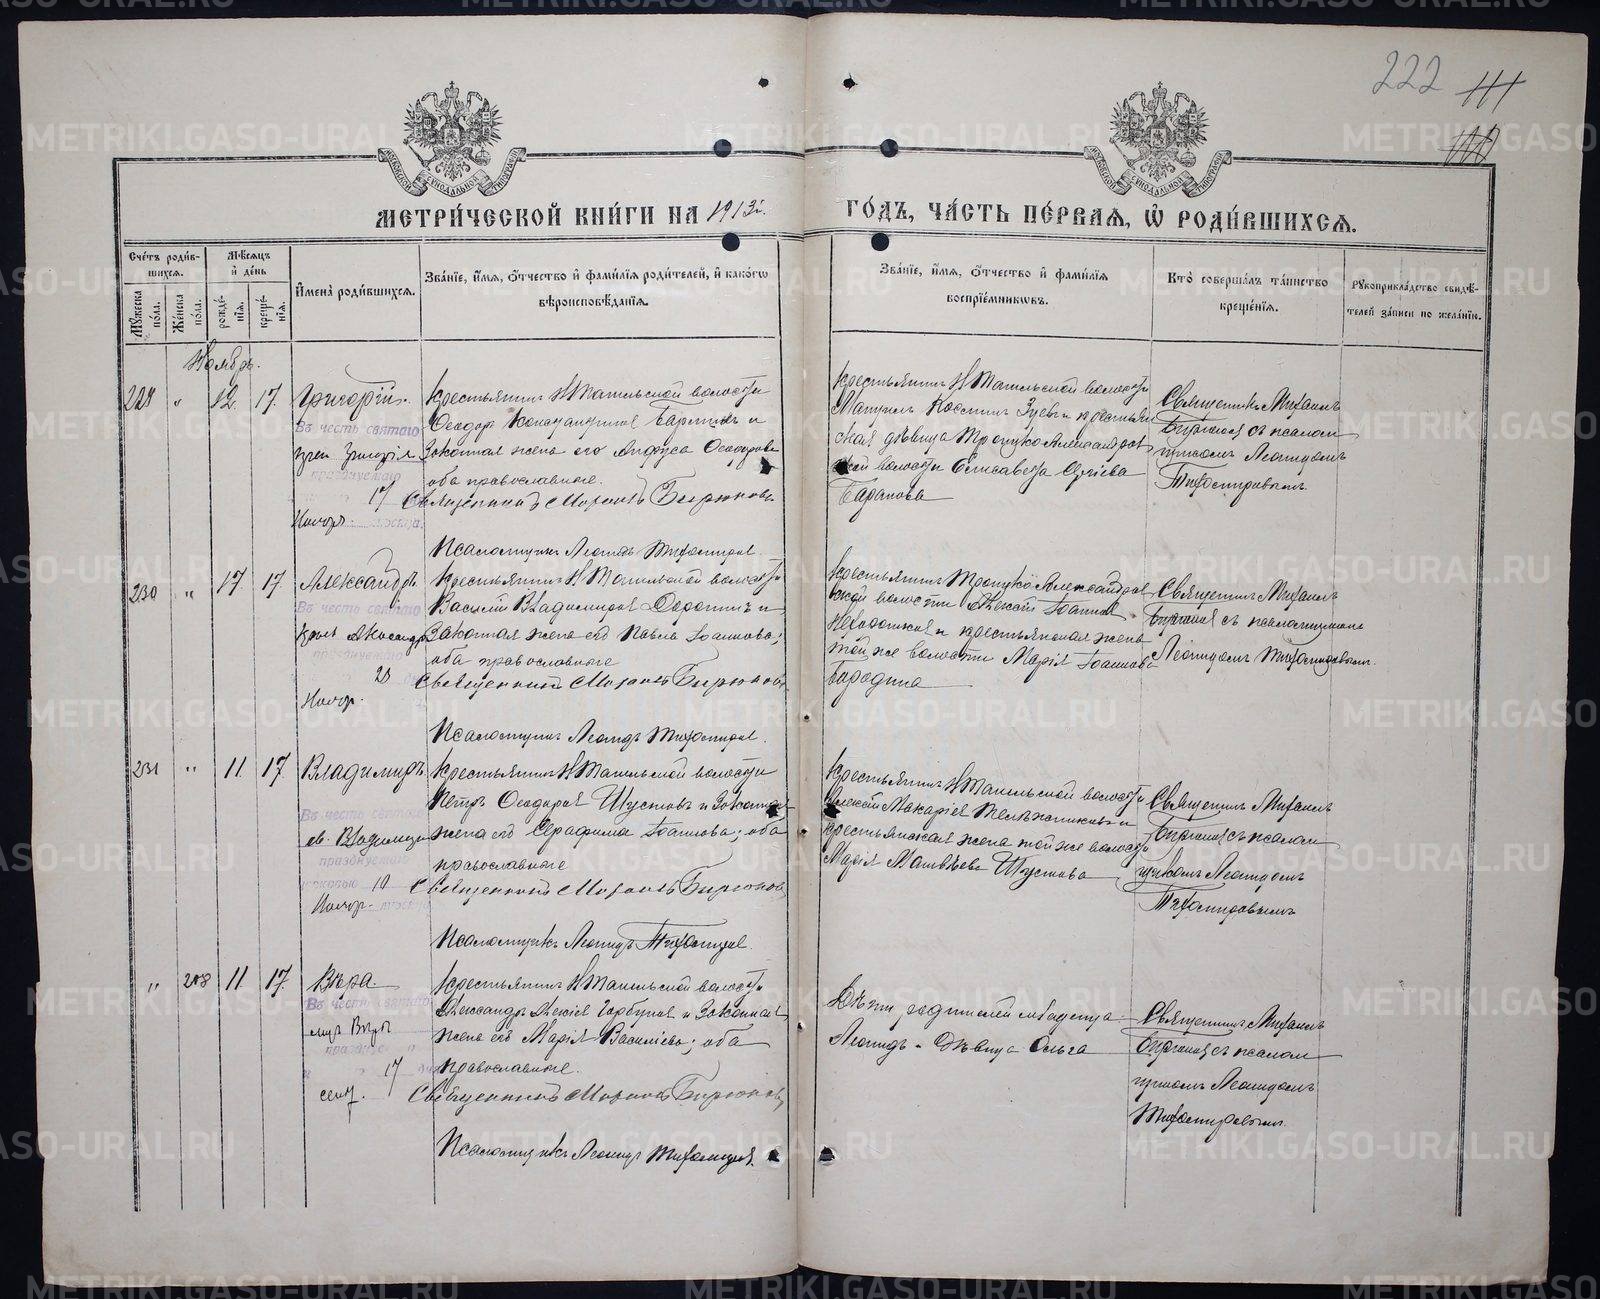 222 111
МЕТРИ́ЧЕСКОЙ КНИ́ГИ НА 1913 г.
ГО́ДЪ, ЧА́СТЬ ПЕ́РВАѦ, Ѡ҆ РОДИ́ВШИХСѦ.
Сче́тъ роди́вшихсѧ.
Му́жеска по́ла.
Же́нска по́ла.
Мѣ́сѧцъ и҆ де́нь
рожде́нїѧ.
креще́нїѧ.
И҆мена̀ роди́вшихсѧ.
Зва́нїе, и҆́мѧ, ѻ҆́тчество и҆ фами́лїѧ роди́телей, и҆ како́гѡ
вѣроисповѣ́данїѧ.
Зва́нїе, и҆́мѧ, ѻ҆́тчество и҆ фами́лїѧ
воспрїе́мникѡвъ.
Кто̀ соверша́лъ та́инство
креще́нїѧ.
Рꙋкоприкла́дство свидѣ́-
телей за́писи по жела́нїю.
Ноябрь.
228 " 12. 17. Григорій.
Въ честь святаго
Григорія
празднуемаго
17
Ноябр. мѣсяца.
Крестьянинъ Н Тагильской волости
Ѳеодоръ
законная жена его Ѳеодорова
оба православные.
Священникъ Михаилъ Бирюковъ
Псаломщикъ Леонидъ Тихомировъ.
Крестьянинъ Н Тагильской волости
Зуевъ и крестьян
ская дѣвица Троицко Александров
ской волости Елисавета Сергіева
Баранова
Священникъ Михаилъ
Бирюковъ съ псалом
щикомъ Леонидомъ
Тихомировымъ.
230 " 17. 17. Александръ
Въ честь святаго
Александр
празднуемаго
23
Ноябр.
Крестьянинъ Н Тагильской волости
Василій Владиміровъ и
законная жена его Іоаннова;
оба православные
Священникъ Михаилъ Бирюковъ
Псаломщикъ Леонидъ Тихомировъ.
Крестьянинъ Троицко Александров
ской волости Алексій Іоанновъ
и крестьянская жена
той же волости Марія Іоаннова
Бородина
Священникъ Михаилъ
Бирюковъ съ псаломщикомъ
Леонидомъ Тихомировымъ.
231 " 11 17. Владиміръ
Въ честь святаго
св. Владиміра
празднуемаго
10
Ноябр. мѣсяца
Крестьянинъ Н Тагильской волости
Петръ Ѳеодоровъ Шустовъ и законная
жена его Серафима Іоаннова; оба
православные
Священникъ Михаилъ Бирюковъ
Псаломщикъ Леонидъ Тихомировъ.
Крестьянинъ Н Тагильской волости
Алексій Макаріевъ и
крестьянская жена той же волости
Марія Матвѣева Шустова
Священникъ Михаилъ
Бирюковъ съ псалом
щикомъ Леонидомъ
Тихомировымъ
" 208 11 17. Вѣра.
Въ честь святаго
муч Вѣры
празднуемаго
17
сент.
Крестьянинъ Н Тагильской волости
Александръ Алексіевъ Горбуновъ и законная
жена его Марія Василіева; оба
православные.
Священникъ Михаилъ Бирюковъ,
Псаломщикъ Леонидъ Тихомировъ.
Дѣти родителей младенца
Леонидъ и дѣвица Ольга
Священникъ Михаилъ
Бирюковъ съ псалом
щикомъ Леонидомъ
Тихомировымъ.
METRIKI.GASO-URAL.RU